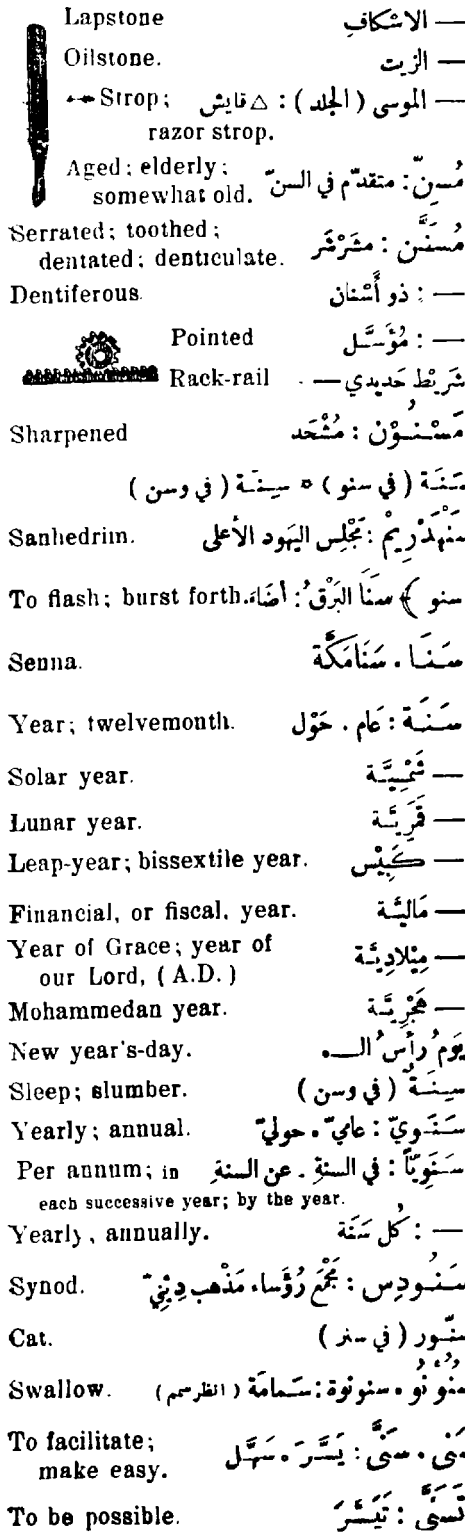 Lapstone — الاسْكافِ
Oilstone. — الزيت
Strop; — الموسى (الجلد): △ قايش
razor strop.
Aged; elderly; مُسِنّ: متقدّم في السنّ
somewhat old.
Serrated; toothed; مُسَنَّن: مشَرْشَر
dentated; denticulate.
Dentiferous. — : ذو أَسْنان
Pointed — : مُؤَسَّل
Rack-rail شَرِيْط حَديدي —
Sharpened مَسْنُوْن: مُشْحَد
سَنَة (في سنو) ٥ سِنَة (في وسن)
Sanhedrim. سَنْهَدْرِيمْ: مَجْلِس اليَهود الأعلى
To flash; burst forth. سنو ﴾ سَنَا البَرْقُ: أضَاءَ
Senna. سَنَا. سَنَامَكَّة
Year; twelvemonth. سَنَة: عَام. حَوْل
Solar year. — شَمْسِيَّة
Lunar year. — قَمَرِيَّة
Leap-year; bissextile year. — كَبِيْس
Financial, or fiscal, year. — مَاليَّة
Year of Grace; year of — مِيْلادِيَّة
our Lord, (A.D.)
Mohammedan year. — هِجْرِيَّة
New year's-day. يَومُ رأسُ الـ —.
Sleep; slumber. سِنَةٌ (في وسن)
Yearly; annual. سَنَوِيّ: عاميّ. حوليّ
Per annum; in سَنَوِيّاً: في السنةِ. عن السنةِ
each successive year; by the year.
Yearly, annually. — : كُل سَنَة
Synod. سَنُودِس: مَجْمَع رُؤَساء مَذْهب دِيْنِيّ
Cat. سنّور (في سنر)
Swallow. سُنُونُو. سنونوة: سَمامَة (انظر سمم)
To facilitate; سَنَى. سَنَّى: يَسَّرَ. سَهَّل
make easy.
To be possible. تَسَنَّى: تَيَسَّرَ